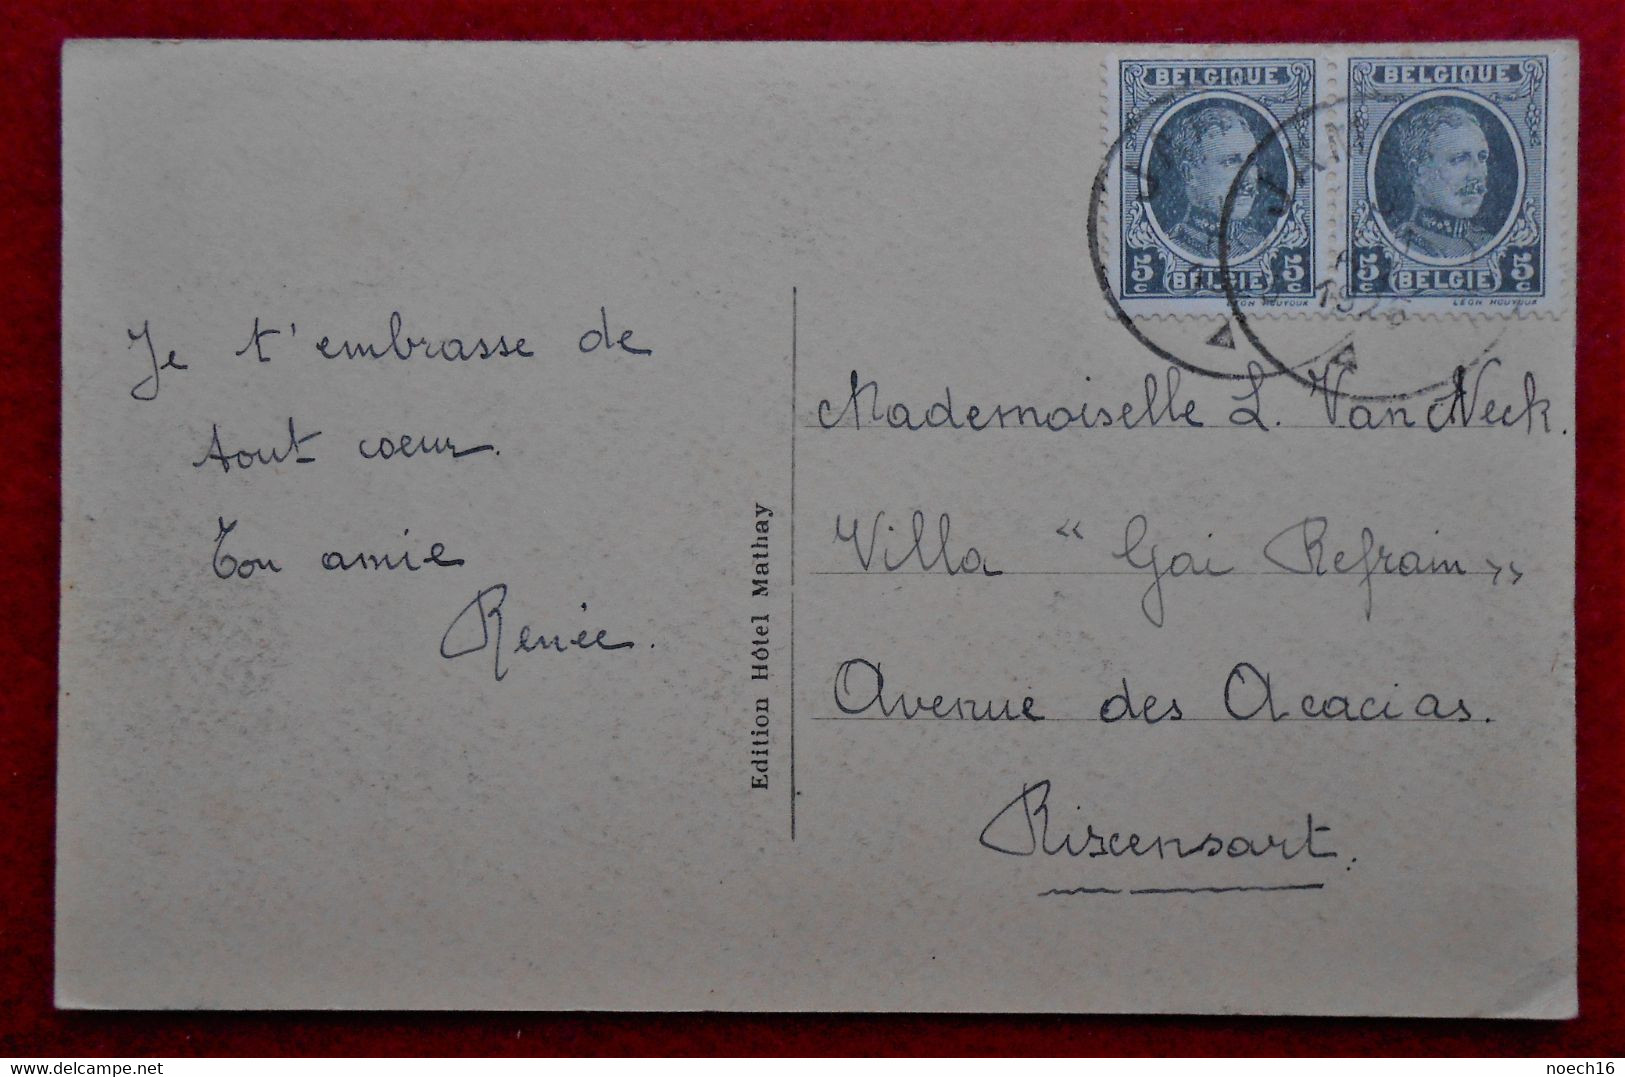 Je t'embrasse de
tout coeur.
Ton amie
Renée.
Edition Hôtel Mathay
BELGIQUE
5 c BELGIË 5 c
BELGIQUE
5 c BELGIË 5 c
LÉON HOUYOUX
1926
Mademoiselle L. Van Neck.
Villa "Gai Refrain"
Avenue des Acacias.
Rixensart.
noech16